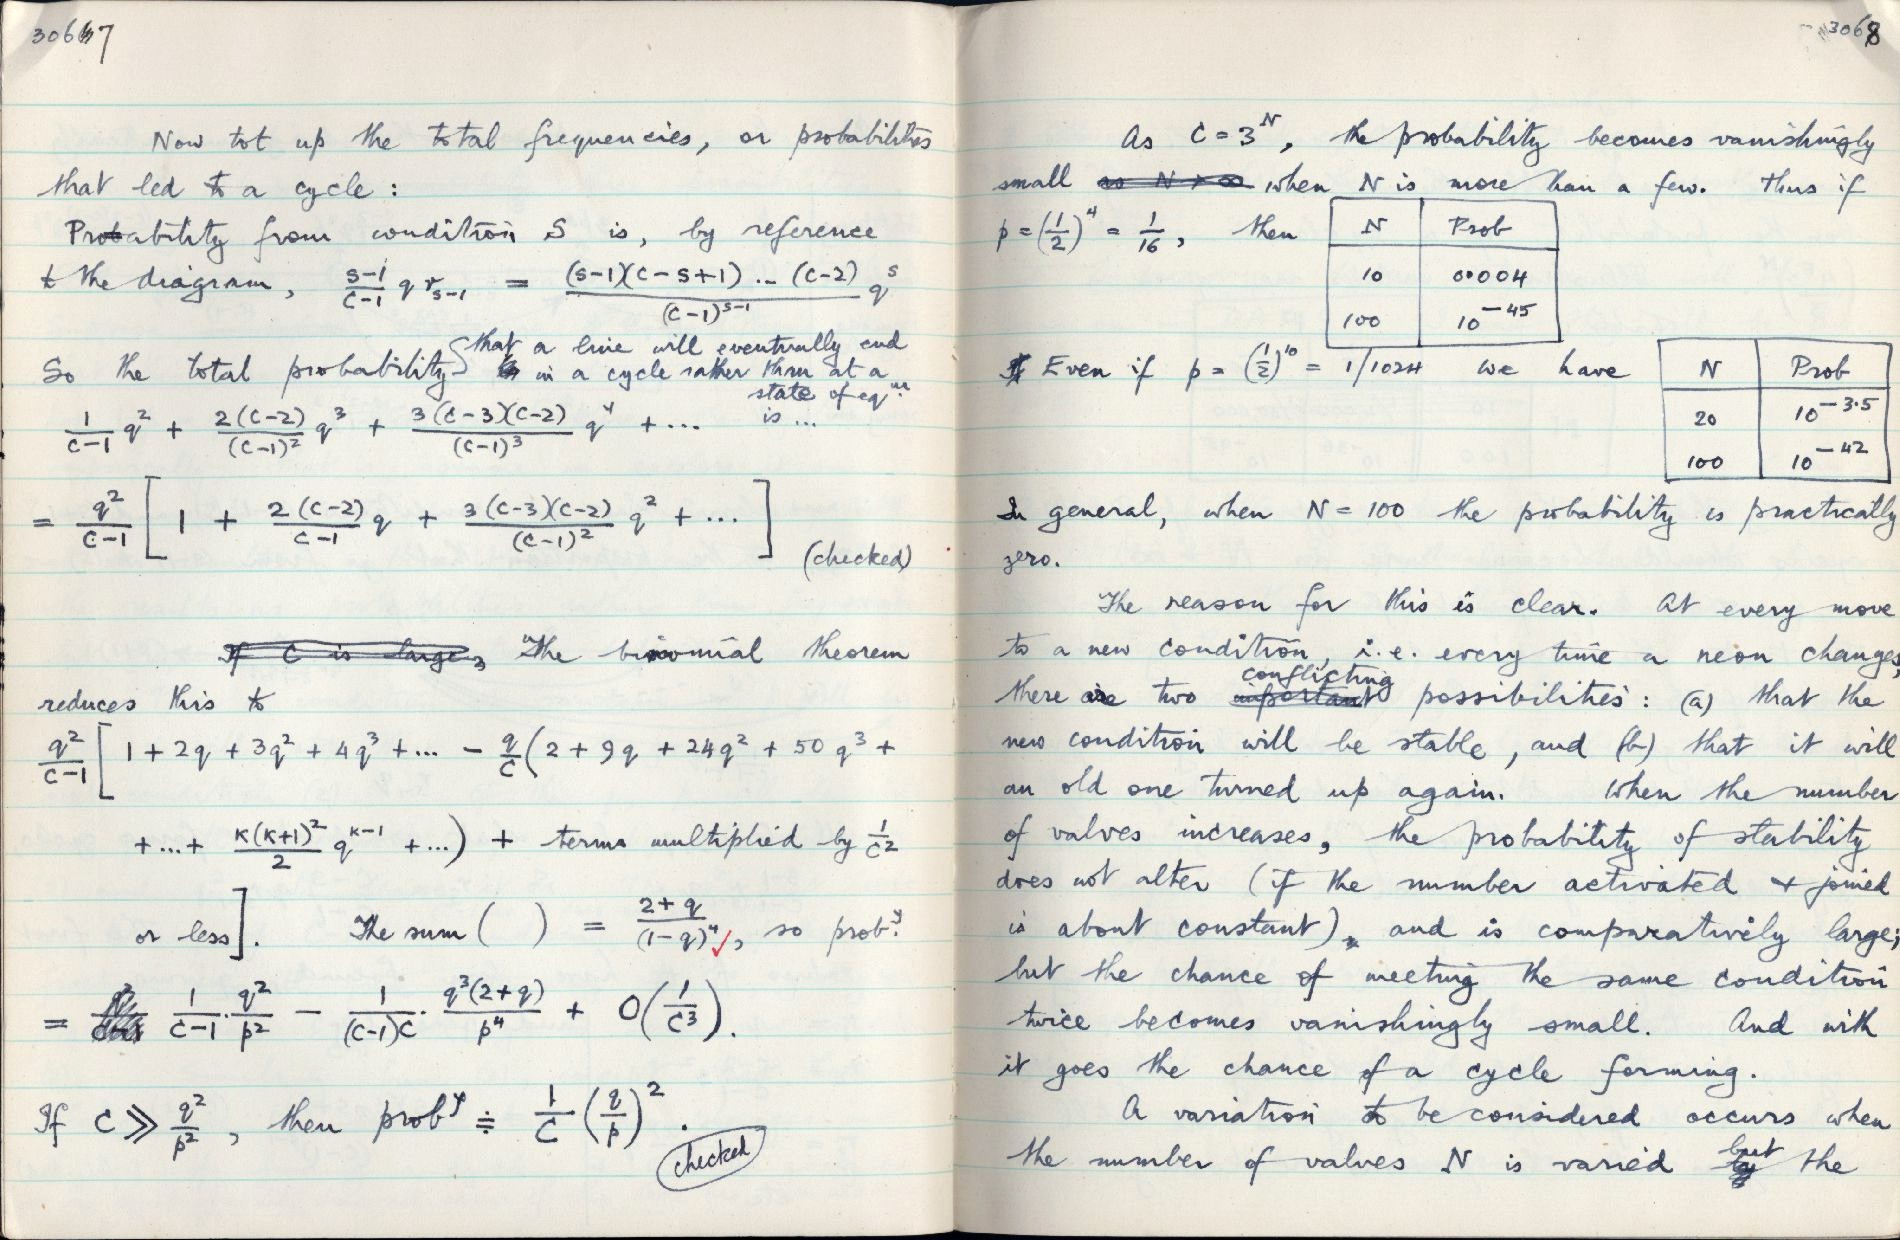 30667
Now tot up the total frequencies, or probabilities
that led to a cycle:
Probability from condition S is, by reference
to the diagram, (s-1)/(C-1) q r_{s-1} = (s-1)(C-s+1) .. (C-2)/(C-1)^{s-1} q^s
So the total probability { that a line will eventually end
in a cycle rather than at a
state of eq^m.
is ...
1/(C-1) q^2 + 2(C-2)/(C-1)^2 q^3 + 3(C-3)(C-2)/(C-1)^3 q^4 + ...
= q^2/(C-1) [ 1 + 2(C-2)/(C-1) q + 3(C-3)(C-2)/(C-1)^2 q^2 + ... ]
(checked)
If C is large, The binomial theorem
reduces this to
q^2/(C-1) [ 1 + 2q + 3q^2 + 4q^3 + ... - q/C ( 2 + 9q + 24q^2 + 50q^3 +
+ ... + K(K+1)^2/2 q^{K-1} + ... ) + terms multiplied by 1/C^2
or less ]. The sum ( ) = (2+q)/(1-q)^4 ✓, so prob^y.
= 1/(C-1) · q^2/p^2 - 1/((C-1)C) · q^3(2+q)/p^4 + O(1/C^3).
If C ≫ q^2/p^2, then prob^y ≑ 1/C (q/p)^2.
checked
3068
As C = 3^N, the probability becomes vanishingly
small as N → ∞ when N is more than a few. Thus if
p = (1/2)^4 = 1/16, then
N Prob
10 0.004
100 10^-45
Even if p = (1/2)^10 = 1/1024 we have
N Prob
20 10^-3.5
100 10^-42
In general, when N = 100 the probability is practically
zero.
The reason for this is clear. At every move
to a new condition, i.e. every time a neon changes,
there are two important conflicting possibilities: (a) that the
new condition will be stable, and (b) that it will
an old one turned up again. When the number
of valves increases, the probability of stability
does not alter (if the number activated & joined
is about constant), and is comparatively large;
but the chance of meeting the same condition
twice becomes vanishingly small. And with
it goes the chance of a cycle forming.
A variation to be considered occurs when
the number of valves N is varied but the